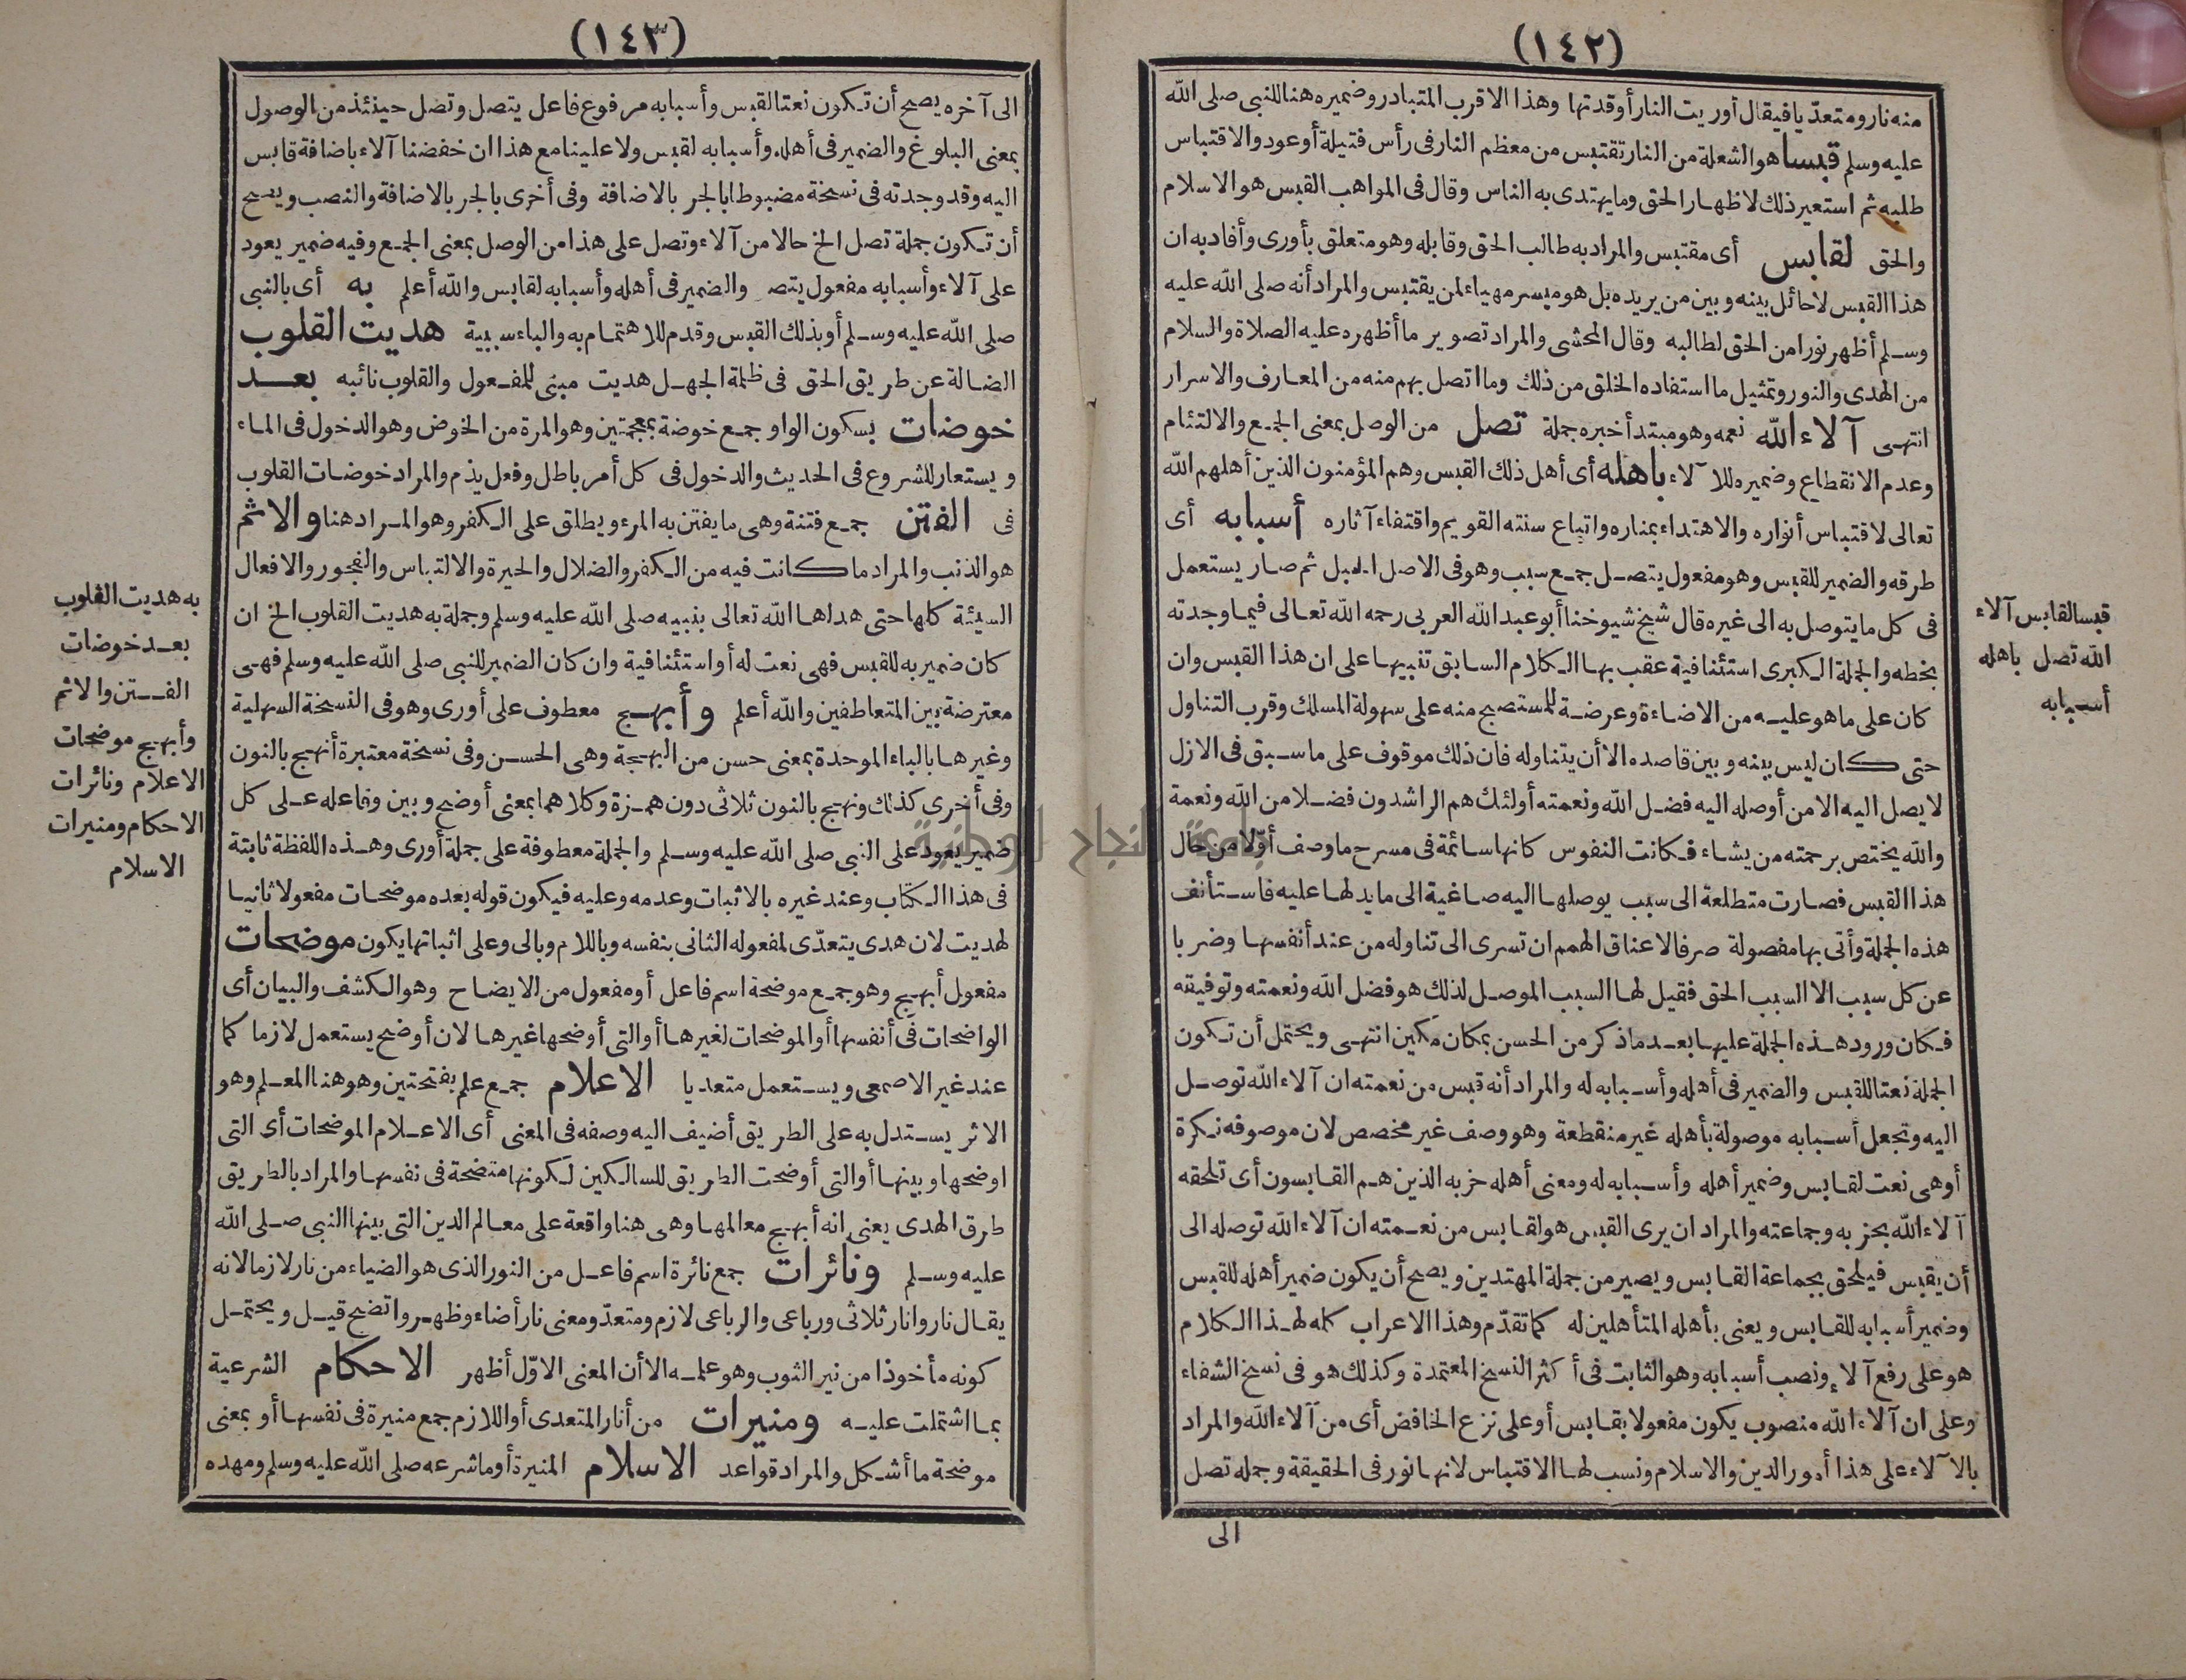 (١٤٢)
منه نار ومتعدّيا فيقال أوريت النار أوقدتها وهذا الاقرب المتبادر وضميره هنا للنبي صلى الله
عليه وسلم قبسا هو الشعلة من النار تقتبس من معظم النار فى رأس فتيلة أو عود والاقتباس
طلبه ثم استعير ذلك لاظهار الحق وما يهتدى به الناس وقال فى المواهب القبس هو الاسلام
والحق لقابس أى مقتبس والمراد به طالب الحق وقابله وهو متعلق بأورى وأفاد به ان
هذا القبس لا حائل بينه وبين من يريده بل هو ميسر مهياء لمن يقتبس والمراد أنه صلى الله عليه
وسلم أظهر نورا من الحق لطالبه وقال المحشى والمراد تصوير ما أظهره عليه الصلاة والسلام
من الهدى والنور وتمثيل ما استفاده الخلق من ذلك وما اتصل بهم منه من المعارف والاسرار
انتهى آلاء الله نعمه وهو مبتدأ خبره جملة تصل من الوصل بمعنى الجمع والالتئام
وعدم الانقطاع وضميره للآلاء بأهله أى أهل ذلك القبس وهم المؤمنون الذين أهلهم الله
تعالى لاقتباس أنواره والاهتداء بمناره واتباع سنته القويم واقتفاء آثاره أسبابه أى
طرقه والضمير للقبس وهو مفعول يتصل جمع سبب وهو فى الاصل الحبل ثم صار يستعمل
فى كل ما يتوصل به الى غيره قال شيخ شيوخنا أبو عبد الله العربى رحمه الله تعالى فيما وجدته
بخطه والجملة الكبرى استئنافية عقب بها الكلام السابق تنبيها على ان هذا القبس وان
كان على ما هو عليه من الاضاءة وعرضة للمستصبح منه على سهولة المسلك وقرب التناول
حتى كان ليس بينه وبين قاصده الا أن يتناوله فان ذلك موقوف على ما سبق فى الازل
لا يصل اليه الا من أوصله اليه فضل الله ونعمته أولئك هم الراشدون فضلا من الله ونعمة
والله يختص برحمته من يشاء فكانت النفوس كانها سائمة فى مسرح ما وصف أوّلا من حال
هذا القبس فصارت متطلعة الى سبب يوصلها اليه صاغية الى ما يدلها عليه فاستأنف
هذه الجملة وأتى بها مفصولة صرفا لاعناق الهمم ان تسرى الى تناوله من عند أنفسها وضربا
عن كل سبب الا السبب الحق فقيل لها السبب الموصل لذلك هو فضل الله ونعمته وتوفيقه
فكان ورود هذه الجملة عليها بعد ما ذكر من الحسن بمكان مكين انتهى ويحتمل أن تكون
الجملة نعتا للقبس والضمير فى أهله وأسبابه له والمراد أنه قبس من نعمته ان آلاء الله توصل
اليه وتجعل أسبابه موصولة بأهله غير منقطعة وهو وصف غير مخصص لان موصوفه نكرة
أو هى نعت لقابس وضمير أهله وأسبابه له ومعنى أهله حزبه الذين هم القابسون أى تلحقه
آلاء الله بحزبه وجماعته والمراد ان يرى القبس هو لقابس من نعمته ان آلاء الله توصله الى
أن يقبس فيلحق بجماعة القابس ويصير من جملة المهتدين ويصح أن يكون ضمير أهله للقبس
وضمير أسبابه للقابس ويعنى بأهله المتأهلين له كما تقدّم وهذا الاعراب كله لهذا الكلام
هو على رفع آلاء ونصب أسبابه وهو الثابت فى أكثر النسخ المعتمدة وكذلك هو فى نسخ الشفاء
وعلى ان آلاء الله منصوب يكون مفعولا بقابس أو على نزع الخافض أى من آلاء الله والمراد
بالآلاء على هذا أمور الدين والاسلام ونسب لها الاقتباس لانها نور فى الحقيقة وجملة تصل
الى
قبسا لقابس آلاء
الله تصل بأهله
أسبابه
(١٤٣)
الى آخره يصح أن تكون نعتا لقبس وأسبابه مرفوع فاعل يتصل وتصل حينئذ من الوصول
بمعنى البلوغ والضمير فى أهله وأسبابه لقبس ولا علينا مع هذا ان خفضنا آلاء باضافة قابس
اليه وقد وجدته فى نسخة مضبوطا بالجر بالاضافة وفى أخرى بالجر بالاضافة والنصب ويصح
أن تكون جملة تصل الخ حالا من آلاء وتصل على هذا من الوصل بمعنى الجمع وفيه ضمير يعود
على آلاء وأسبابه مفعول يتصل والضمير فى أهله وأسبابه لقابس والله أعلم به أى بالنبى
صلى الله عليه وسلم أو بذلك القبس وقدم للاهتمام به والباء سببية هديت القلوب
الضالة عن طريق الحق فى ظلمة الجهل هديت مبنى للمفعول والقلوب نائبه بعد
خوضات بسكون الواو جمع خوضة بمعجمتين وهو المرة من الخوض وهو الدخول فى الماء
ويستعار للشروع فى الحديث والدخول فى كل أمر باطل وفعل يذم والمراد خوضات القلوب
فى الفتن جمع فتنة وهى ما يفتن به المرء ويطلق على الكفر وهو المراد هنا والاثم
هو الذنب والمراد ما كانت فيه من الكفر والضلال والحيرة والالتباس والفجور والافعال
السيئة كلها حتى هداها الله تعالى بنبيه صلى الله عليه وسلم وجملة به هديت القلوب الخ ان
كان ضمير به للقبس فهى نعت له أو استئنافية وان كان الضمير للنبى صلى الله عليه وسلم فهى
معترضة بين المتعاطفين والله أعلم وأبهج معطوف على أورى وهو فى النسخة السهلية
وغيرها بالباء الموحدة بمعنى حسن من البهجة وهى الحسن وفى نسخة معتبرة أنهج بالنون
وفى أخرى كذلك ونهج بالنون ثلاثى دون همزة وكلاهما بمعنى أوضح وبين وفاعله على كل
ضمير يعود على النبى صلى الله عليه وسلم والجملة معطوفة على جملة أورى وهذه اللفظة ثابتة
فى هذا الكتاب وعند غيره بالاثبات وعدمه وعليه فيكون قوله بعده موضحات مفعولا ثانيا
لهديت لان هدى يتعدّى لمفعوله الثانى بنفسه وباللام وبالى وعلى اثباتها يكون موضحات
مفعول أبهج وهو جمع موضحة اسم فاعل أو مفعول من الايضاح وهو الكشف والبيان أى
الواضحات فى أنفسها أو الموضحات لغيرها أو التى أوضحها غيرها لان أوضح يستعمل لازما كما
عند غير الاصمعى ويستعمل متعديا الاعلام جمع علم بفتحتين وهو هنا المعلم وهو
الاثر يستدل به على الطريق أضيف اليه وصفه فى المعنى أى الاعلام الموضحات أى التى
اوضحها وبينها أو التى أوضحت الطريق للسالكين لكونها متضحة فى نفسها والمراد بالطريق
طرق الهدى يعنى انه أبهج معالمها وهى هنا واقعة على معالم الدين التى بينها النبى صلى الله
عليه وسلم ونائرات جمع نائرة اسم فاعل من النور الذى هو الضياء من نار لازما لانه
يقال نار وانار ثلاثى ورباعى والرباعى لازم ومتعدّ ومعنى نار أضاء وظهر واتضح قيل ويحتمل
كونه مأخوذا من نير الثوب وهو علمه الا أن المعنى الاوّل أظهر الاحكام الشرعية
بما اشتملت عليه ومنيرات من أنار المتعدى أو اللازم جمع منيرة فى نفسها أو بمعنى
موضحة ما أشكل والمراد قواعد الاسلام المنيرة أو ما شرعه صلى الله عليه وسلم ومهده
به هديت القلوب
بعد خوضات
الفتن والاثم
وأبهج موضحات
الاعلام ونائرات
الاحكام ومنيرات
الاسلام
جامعة النجاح الوطنية